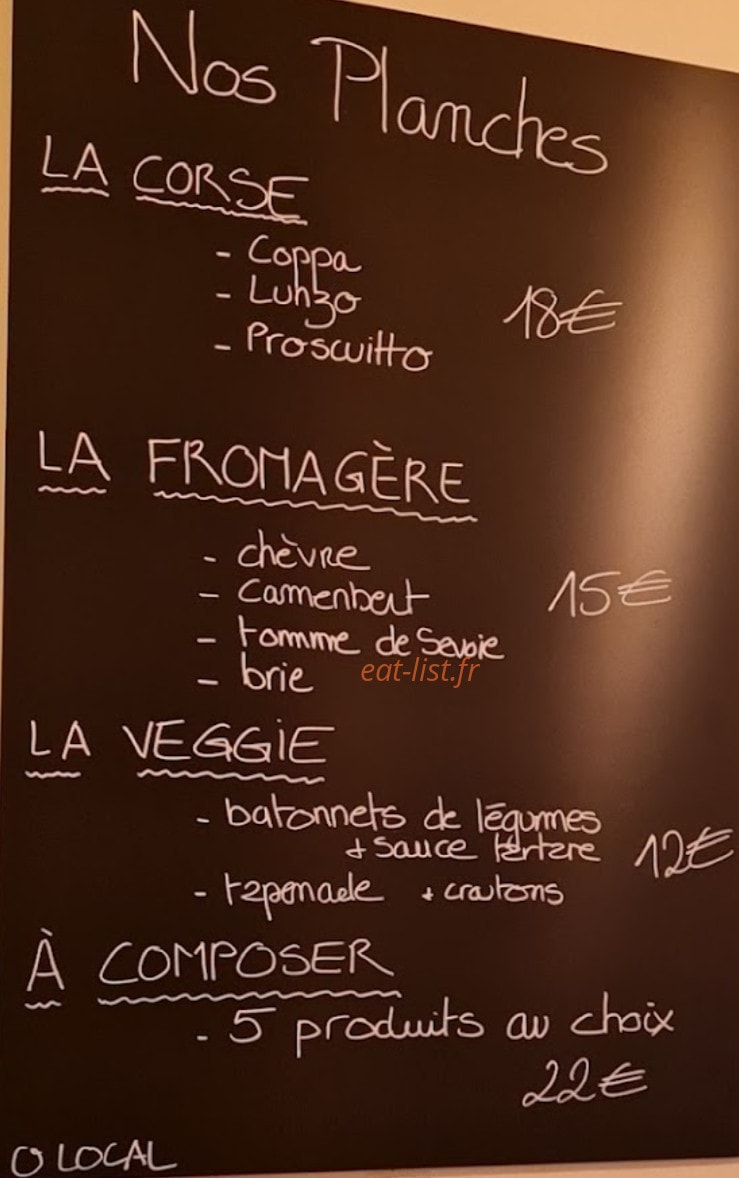 Nos Planches
LA CORSE
- Coppa
- Lunzo
- Proscuitto
18€
LA FROMAGÈRE
- chèvre
- Camenbert
- tomme de Savoie
- brie
15€
eat-list.fr
LA VEGGIE
- batonnets de légumes
+ sauce tartare
- tapenade + croutons
12€
À COMPOSER
- 5 produits au choix
22€
O LOCAL